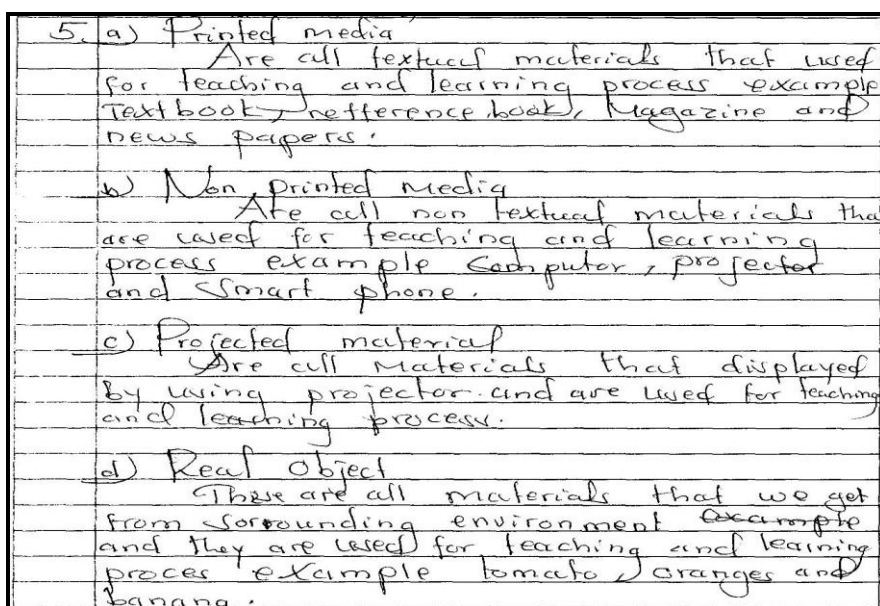 5. a) Printed media
Are all textual materials that used
for teaching and learning process example
Textbook, refference book, Magazine and
news papers.
b) Non printed media
Are all non textual materials tha
are used for teaching and learning
process example Computor, projector
and Smart phone.
c) Projected material
Are all Materials that displayed
by using projector and are used for teaching
and leaching process.
d) Real Object
These are all materials that we get
from sorrounding environment example
and they are used for teaching and learning
proces example tomato, oranges and
banana.